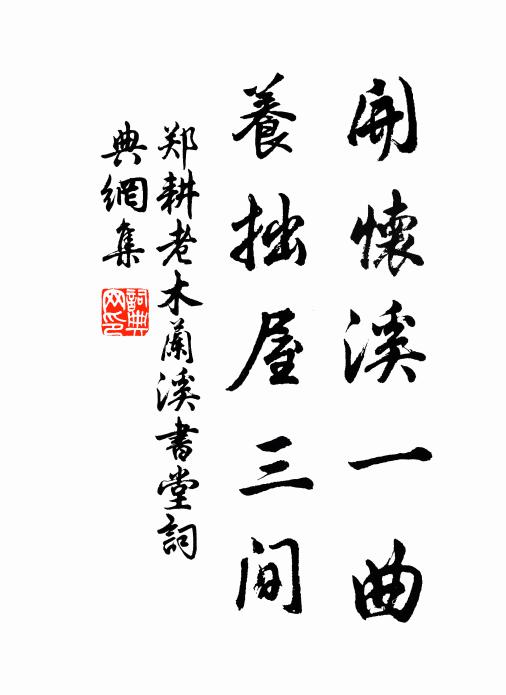 開懷溪一曲
養拙屋三间
郑耕老木蘭溪書堂詞
典網集
詞典網印